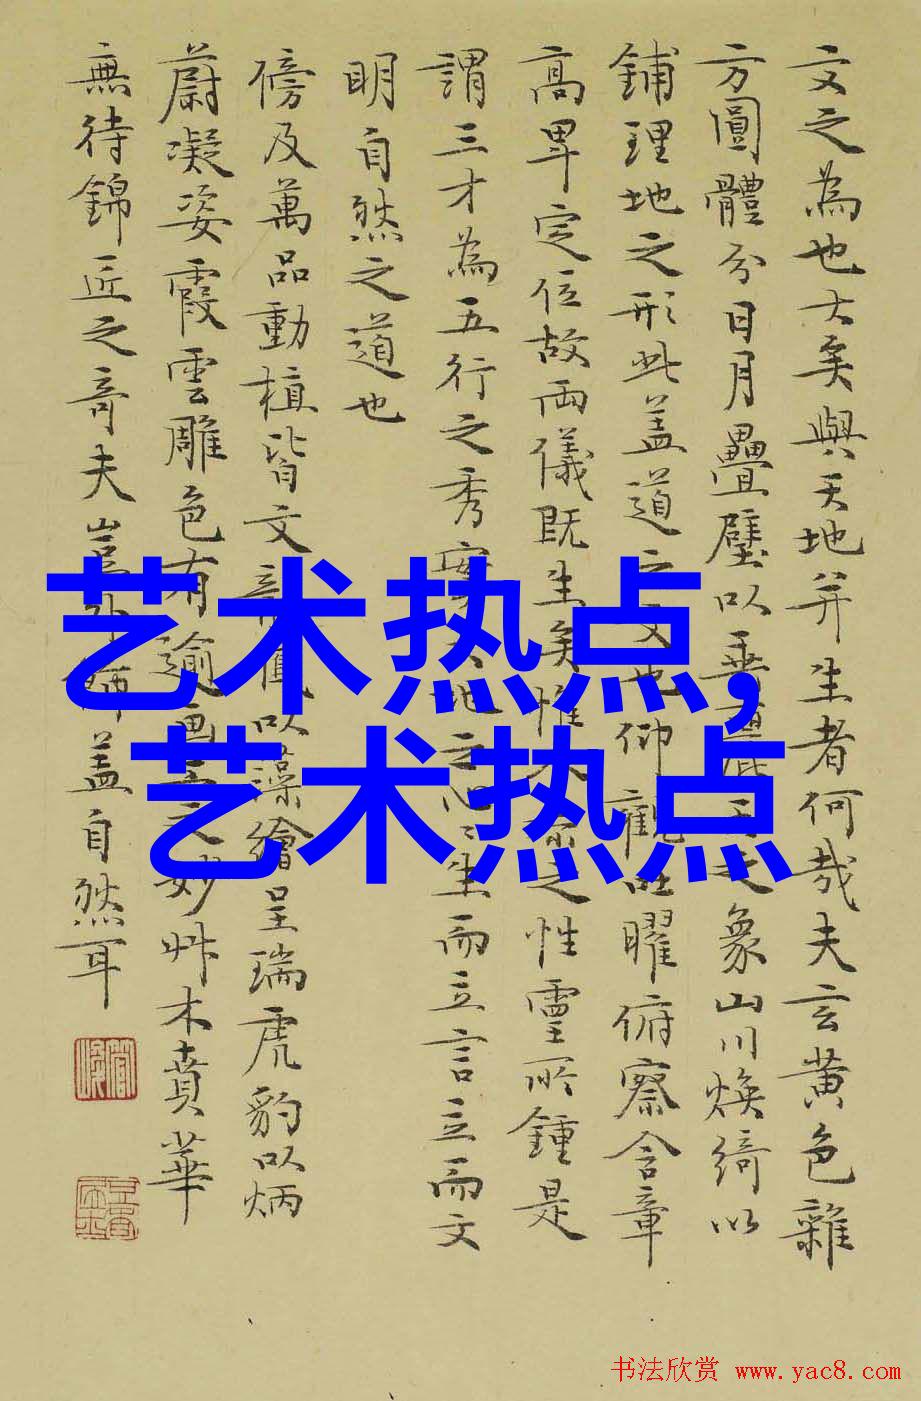 文之為也大矣與天地并生者何哉夫玄黄色雜
方圓體分日月疊璧以垂之象山川煥綺以
鋪理地之形此盖道之文也仰觀曜俯察含章
高卑定位故兩儀既生矣惟之性靈所鍾是
謂三才為五行之秀地之心〻生而立言立而文
明自然之道也
傍及萬品動植皆文以藻繪呈瑞虎豹以炳
蔚凝姿霞雲雕色有逾之妙艸木賁華
無待錦匠之奇夫豈盖自然耳
艺术热点,
艺术热点
书法欣赏 www.yac8.com